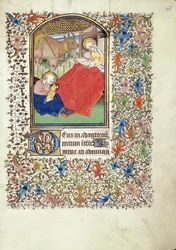 Deus in adiutoriū
meum intende Do
mine ad adiuuan